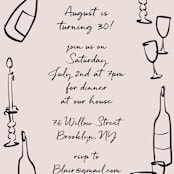 August is
turning 30!
join us on
Saturday
July 2nd at 7pm
for dinner
at our house
76 Willow Street
Brooklyn, NY
rsvp to
Blair@gmail.com